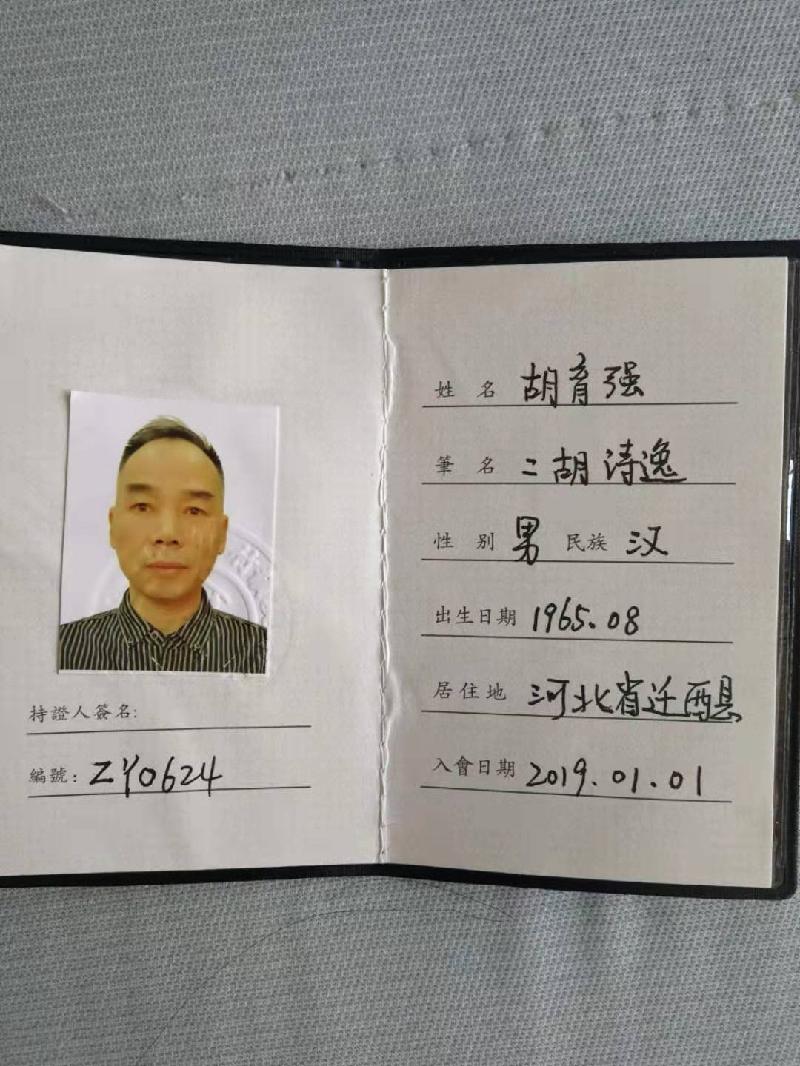 持證人簽名:
編號: ZY0624
姓 名 胡育强
筆 名 二胡诗逸
性 别 男 民族 汉
出生日期 1965.08
居住地 河北省迁西县
入會日期 2019.01.01